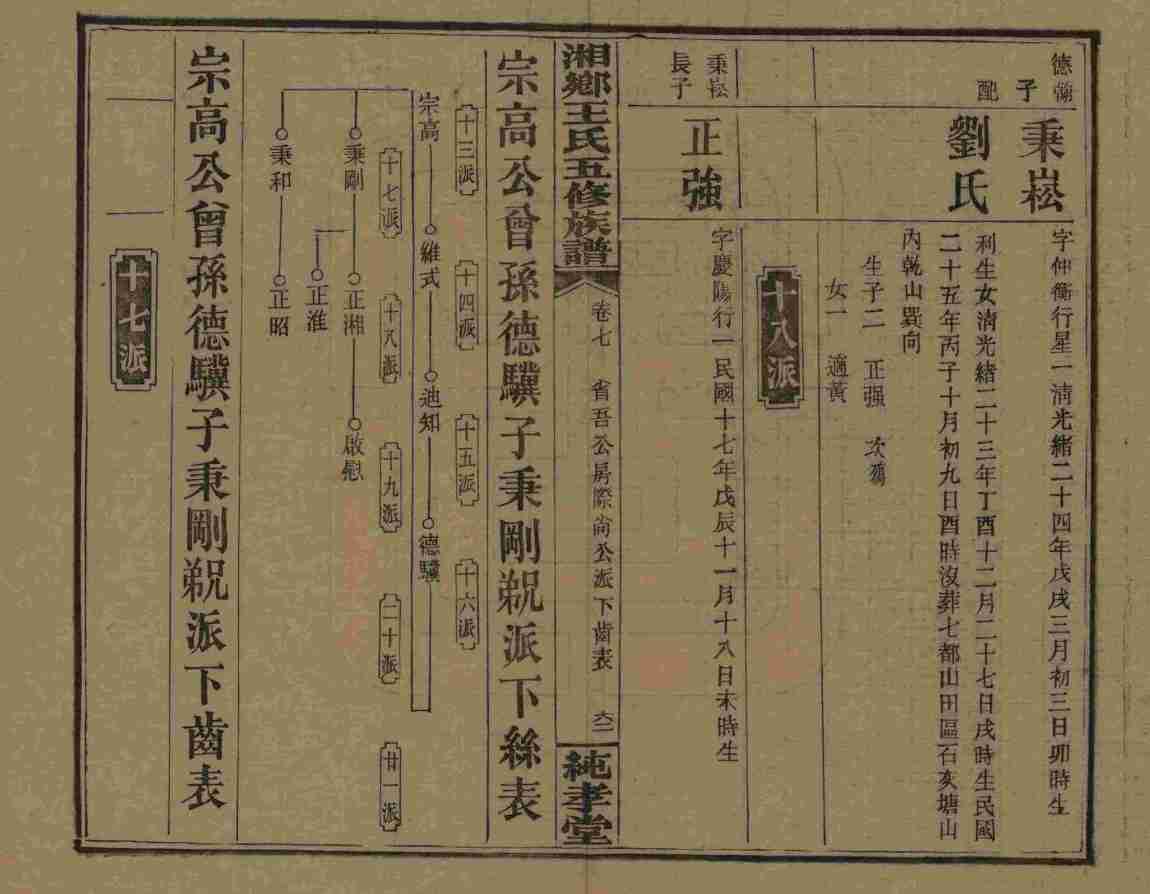 德
子
秉崧
字仲衡行星一清光緒二十四年戊戌三月初三日卯時生
配
劉氏
利生女清光緒二十三年丁酉十二月二十七日戌時生民國
二十五年丙子十月初九日酉時沒葬七都山田區石灰塘山
內乾山巽向
生子二 正强 次殤
女一 適黃
十八派
秉崧
長子
正強
字慶陽行一民國十七年戊辰十一月十八日未時生
湘鄉王氏五修族譜
卷七 省吾公房際尚公派下齒表
純孝堂
宗高公曾孫德驥子秉剛派下絲表
十三派 十四派 十五派 十六派
宗高 維式 迪知 德驥
十七派 十八派 十九派 二十派 廿一派
秉剛 正湘 啟慰
正淮
秉和 正昭
宗高公曾孫德驥子秉剛派下齒表
十七派